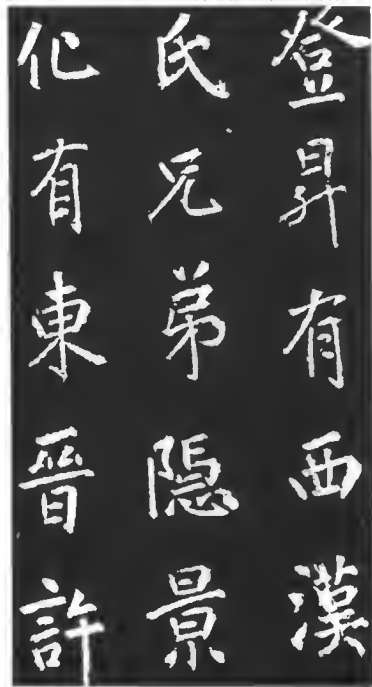 登昇有西漢
氏兄弟隐景
化有東晉許